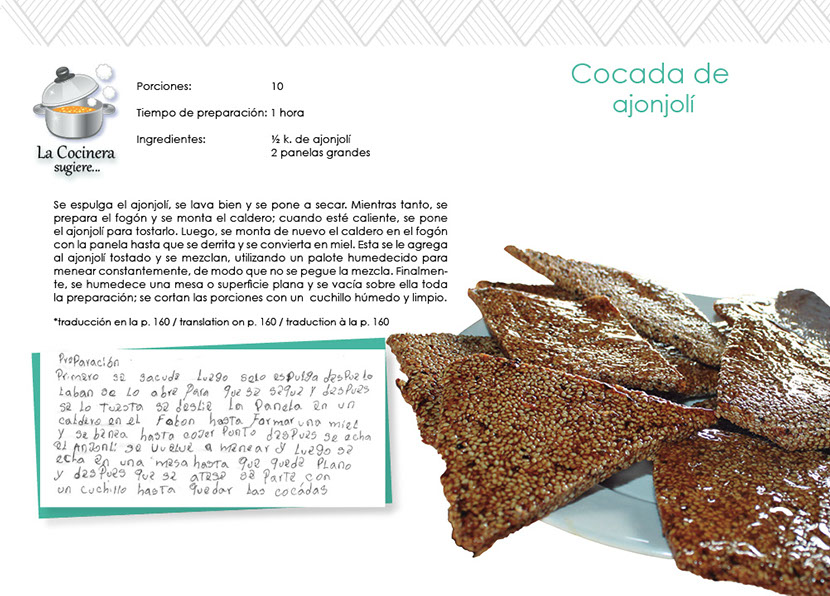 Cocada de
ajonjolí
La Cocinera
sugiere...
Porciones: 10
Tiempo de preparación: 1 hora
Ingredientes: ½ k. de ajonjolí
2 panelas grandes
Se espulga el ajonjolí, se lava bien y se pone a secar. Mientras tanto, se
prepara el fogón y se monta el caldero; cuando esté caliente, se pone
el ajonjolí para tostarlo. Luego, se monta de nuevo el caldero en el fogón
con la panela hasta que se derrita y se convierta en miel. Esta se le agrega
al ajonjolí tostado y se mezclan, utilizando un palote humedecido para
menear constantemente, de modo que no se pegue la mezcla. Finalmen-
te, se humedece una mesa o superficie plana y se vacía sobre ella toda
la preparación; se cortan las porciones con un cuchillo húmedo y limpio.
*traducción en la p. 160 / translation on p. 160 / traduction à la p. 160
PreParación
Primero se sacude Luego selo espulga desPue Lo
Laban se Lo abre Para que se seque y despues
se lo Tuesta se deslie La Panela en un
caldero en el Fobon hasta Formar una miel
y se benea hasta cojer Ponto despues se echa
el Anjonlí se vuelve a menear y Luego se
echa en una mesa hasta que quede Plano
y desPues que se atese se Parte con
un cuchillo hasta quedar Las cocadas